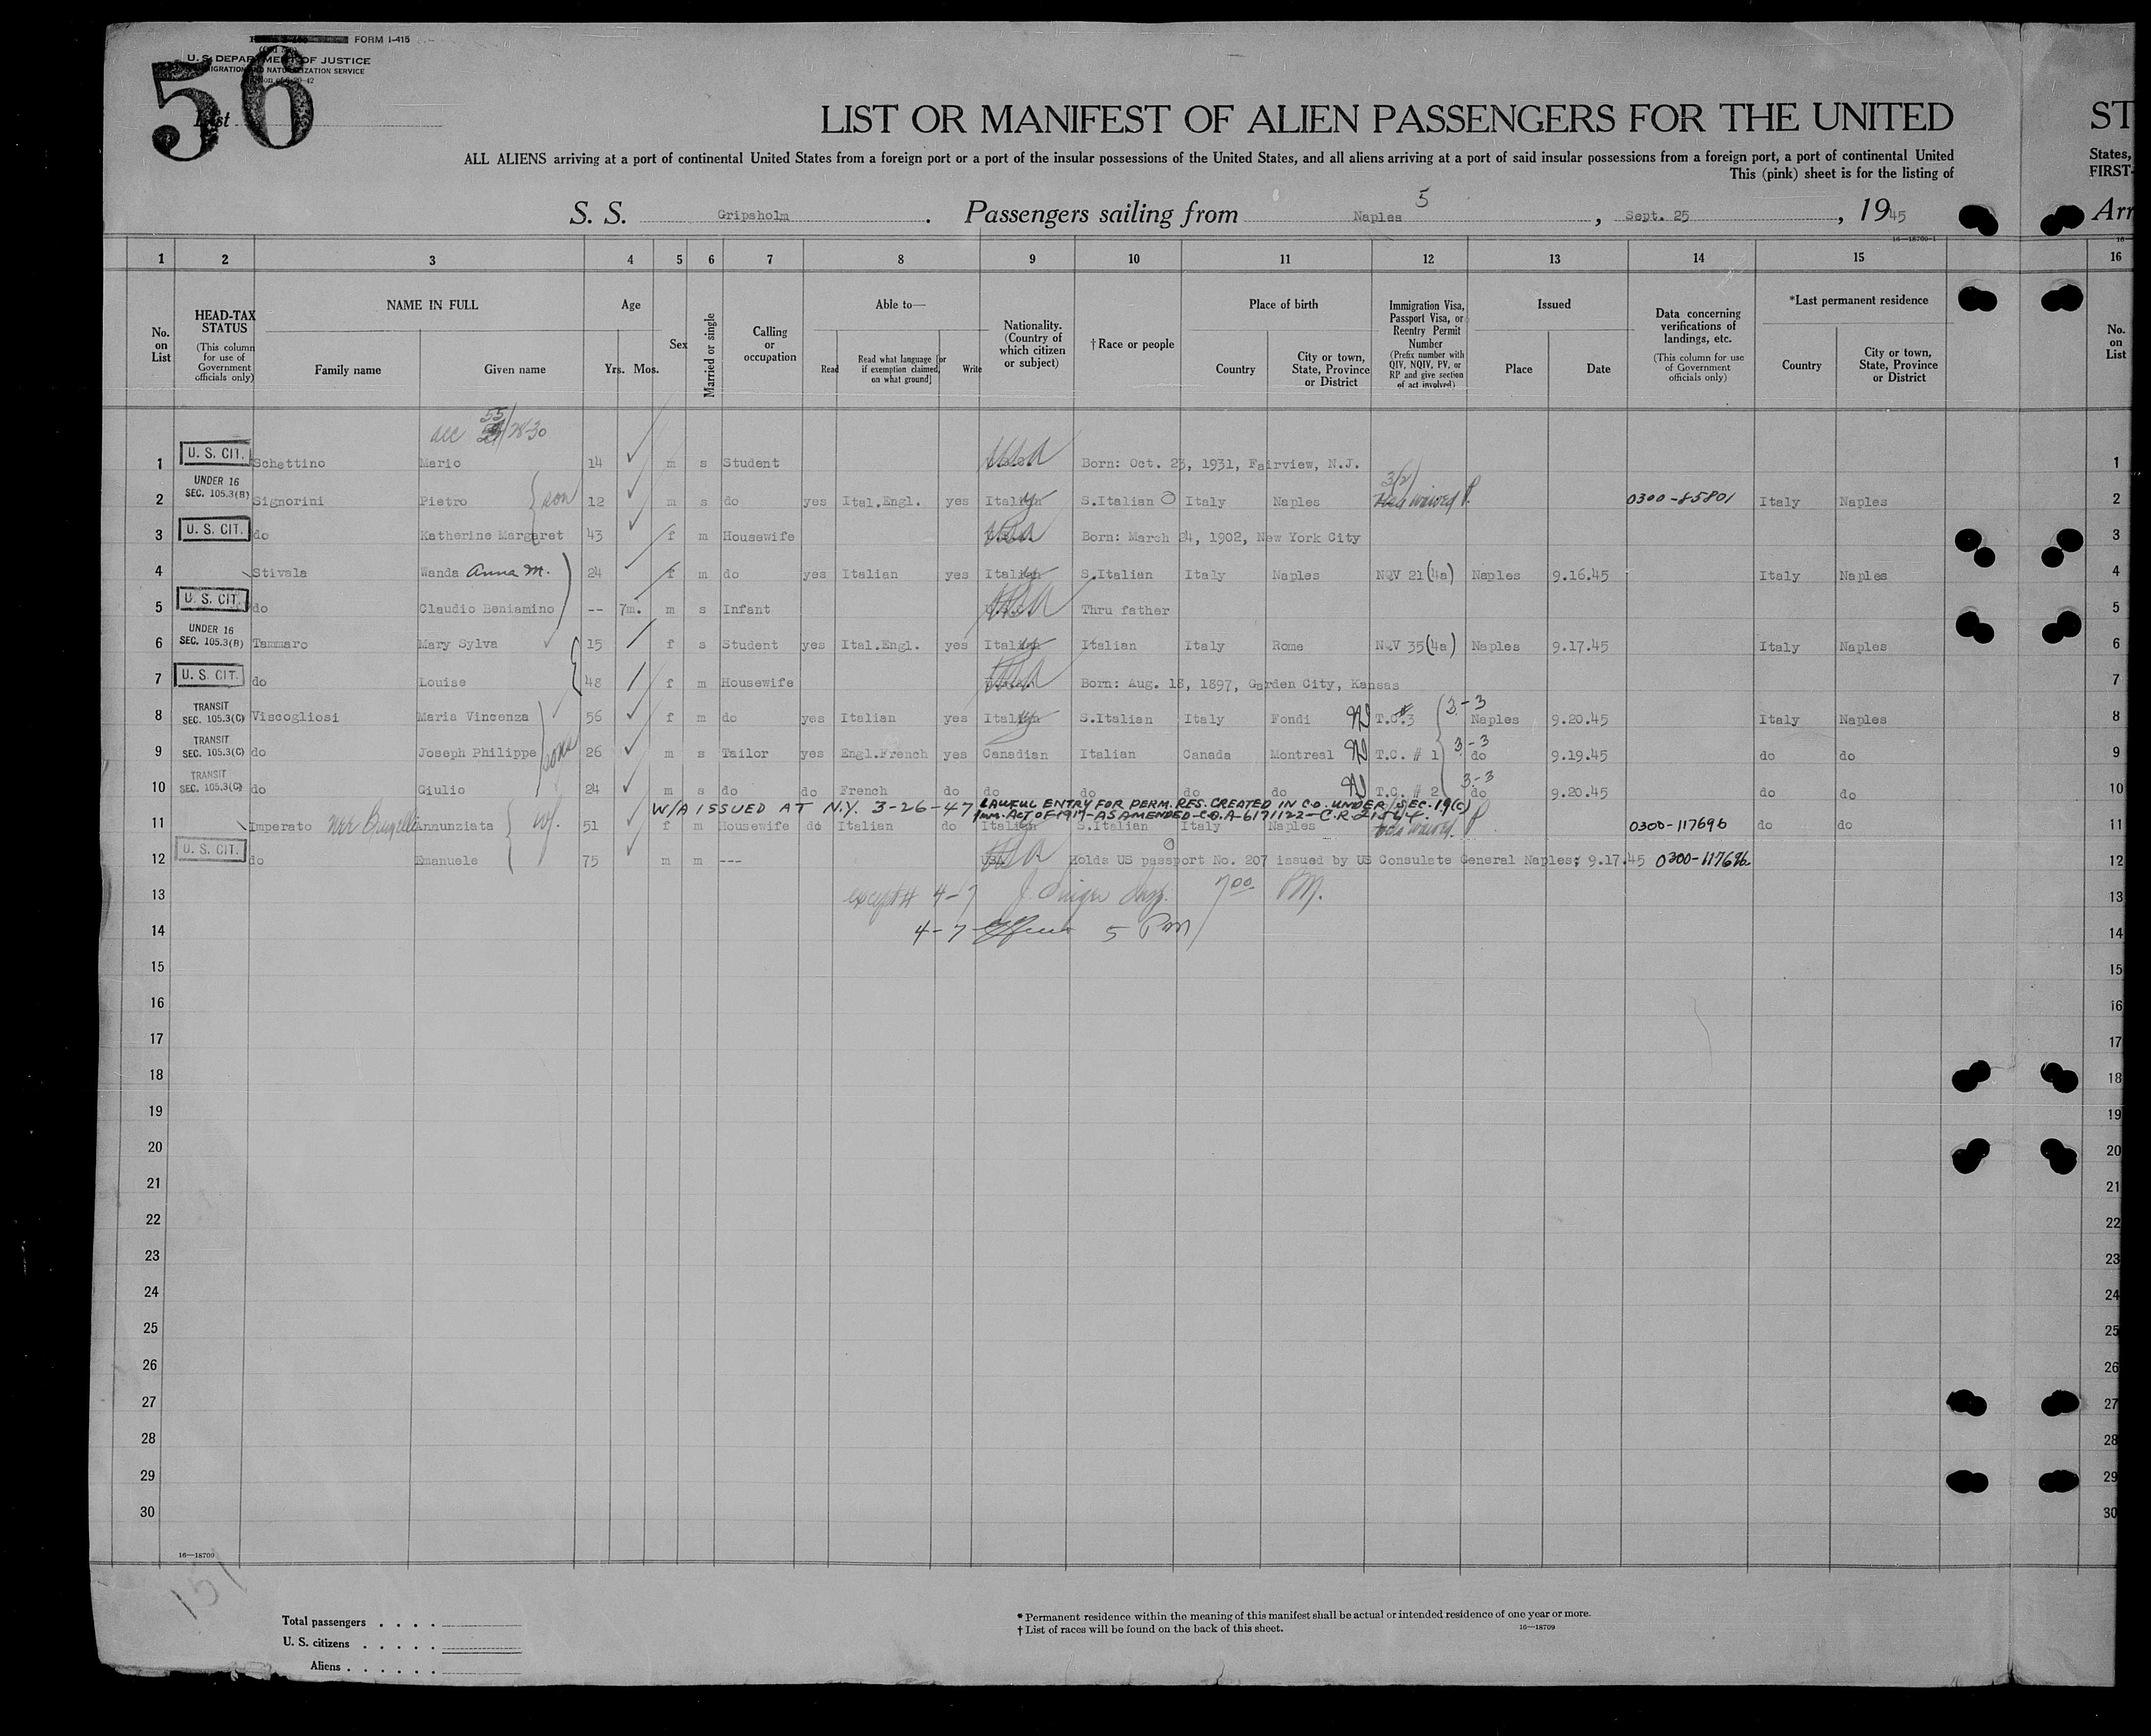 FORM I-415
U. S. DEPARTMENT OF JUSTICE
IMMIGRATION AND NATURALIZATION SERVICE
56
List
LIST OR MANIFEST OF ALIEN PASSENGERS FOR THE UNITED
ST
ALL ALIENS arriving at a port of continental United States from a foreign port or a port of the insular possessions of the United States, and all aliens arriving at a port of said insular possessions from a foreign port, a port of continental United
States,
This (pink) sheet is for the listing of
FIRST-
S. S. Gripsholm . Passengers sailing from Naples 5 , Sept. 25 , 1945
Arr
16—18709-1
1 2 3 4 5 6 7 8 9 10 11 12 13 14 15 16
No. on List
HEAD-TAX STATUS (This column for use of Government officials only)
NAME IN FULL Family name Given name
Age Yrs. Mos.
Sex
Married or single
Calling or occupation
Able to— Read Read what language [or if exemption claimed, on what ground] Write
Nationality. (Country of which citizen or subject)
† Race or people
Place of birth Country City or town, State, Province or District
Immigration Visa, Passport Visa, or Reentry Permit Number (Prefix number with QIV, NQIV, PV, or RP and give section of act involved)
Issued Place Date
Data concerning verifications of landings, etc. (This column for use of Government officials only)
*Last permanent residence Country City or town, State, Province or District
No. on List
55 28-30
1 U. S. CIT. Schettino Mario 14 m s Student USA Born: Oct. 23, 1931, Fairview, N.J. 1
2 UNDER 16 SEC. 105.3(B) Signorini Pietro son 12 m s do yes Ital.Engl. yes Italy S.Italian Italy Naples 3(2) waived P. 0300-85801 Italy Naples 2
3 U. S. CIT. do Katherine Margaret 43 f m Housewife USA Born: March 24, 1902, New York City 3
4 Stivala Wanda Anna M. 24 f m do yes Italian yes Italy S.Italian Italy Naples NQV 21(4a) Naples 9.16.45 Italy Naples 4
5 U. S. CIT. do Claudio Beniamino -- 7m. m s Infant USA Thru father 5
6 UNDER 16 SEC. 105.3(B) Tammaro Mary Sylva 15 f s Student yes Ital.Engl. yes Italy Italian Italy Rome NQV 35(4a) Naples 9.17.45 Italy Naples 6
7 U. S. CIT. do Louise 48 f m Housewife USA Born: Aug. 18, 1897, Garden City, Kansas 7
8 TRANSIT SEC. 105.3(C) Viscogliosi Maria Vincenza 56 f m do yes Italian yes Italy S.Italian Italy Fondi T.C. # 3 3-3 Naples 9.20.45 Italy Naples 8
9 TRANSIT SEC. 105.3(C) do Joseph Philippe sons 26 m s Tailor yes Engl.French yes Canadian Italian Canada Montreal T.C. # 1 3-3 do 9.19.45 do do 9
10 TRANSIT SEC. 105.3(C) do Giulio 24 m s do do French do do do do do T.C. # 2 3-3 do 9.20.45 do do 10
W/A ISSUED AT N.Y. 3-26-47 LAWFUL ENTRY FOR PERM. RES. CREATED IN C.O. UNDER SEC. 19(c)
IMM. ACT OF 1917-AS AMENDED-C.O.A-6171122-C.R.
11 Imperato nee Annunziata wf. 51 f m Housewife do Italian do Italy S.Italian Italy Naples waived. P 0300-117696 do do 11
12 U. S. CIT. do Emanuele 75 m m --- USA Holds US passport No. 207 issued by US Consulate General Naples; 9.17.45 0300-117696. 12
13 except # 4-7 J. Singer Insp. 7 00 P.M. 13
14 4-7 5 PM 14
15 15
16 16
17 17
18 18
19 19
20 20
21 21
22 22
23 23
24 24
25 25
26 26
27 27
28 28
29 29
30 30
16—18709
151
Total passengers . . . .
U. S. citizens . . . . .
Aliens . . . . . .
* Permanent residence within the meaning of this manifest shall be actual or intended residence of one year or more.
† List of races will be found on the back of this sheet.
16—18709